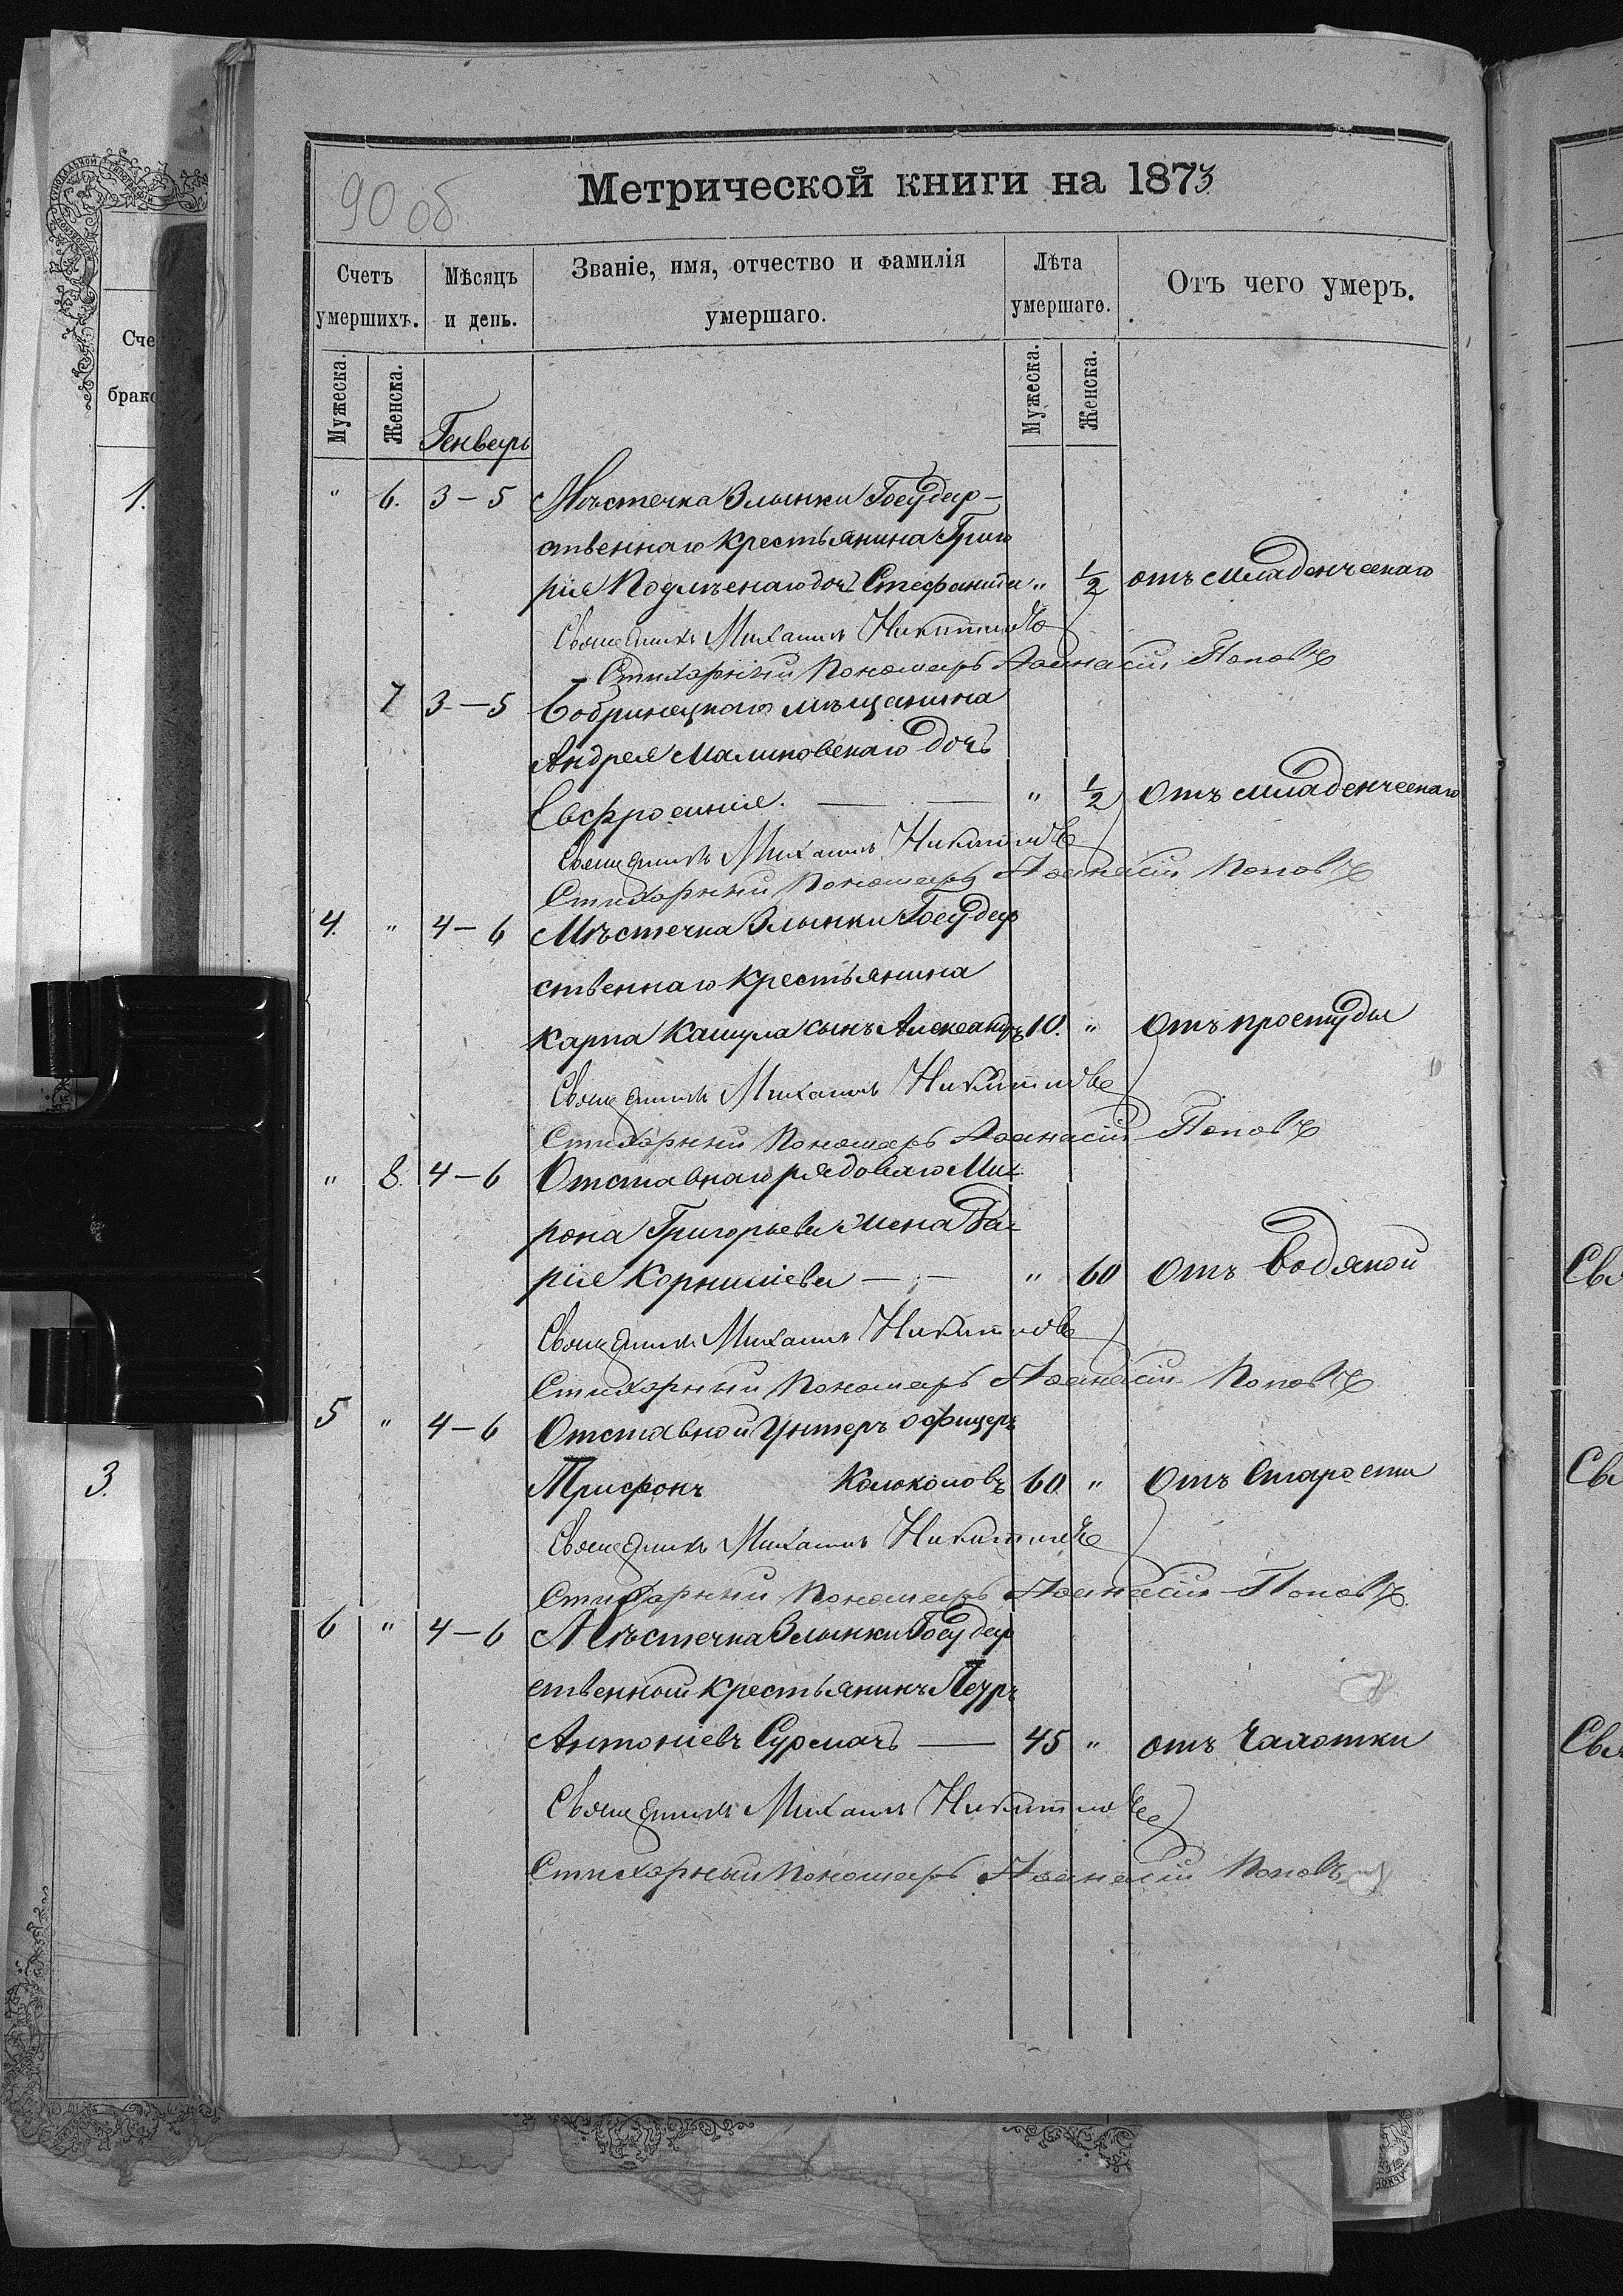 90 об.
Метрической книги на 1873
Счетъ умершихъ.
Мѣсяцъ и день.
Званіе, имя, отчество и фамилія умершаго.
Лѣта умершаго.
Отъ чего умеръ.
Мужеска.
Женска.
Генварь
Мужеска.
Женска.
" 6. 3-5 Мѣстечка Злынки Государ-
ственнаго крестьянина Григо
рія доч Стефанида " 1/2 отъ младенческаго
Священникъ Михаилъ Никитинъ
Стихарный Пономарь Аѳанасій Поповъ
7 3-5 Бобринецкаго мѣщанина
Андрея Малиновскаго дочь
Евфросинія. " 1/2 Отъ младенческаго
Священникъ Михаилъ Никитинъ
Стихарный Пономарь Аѳанасій Поповъ
4. " 4-6 Мѣстечка Злынки Государ
ственнаго крестьянина
Карпа сынъ Александръ 10. " Отъ простуды
Священникъ Михаилъ Никитинъ
Стихарный Пономарь Аѳанасій Поповъ
" 8. 4-6 Отставнаго рядоваго Ми
рона Григорьева жена Да-
рія Корниліева " 60 Отъ водяной
Священникъ Михаилъ Никитинъ
Стихарный Пономарь Аѳанасій Поповъ
5 " 4-6 Отставной Унтеръ офицеръ
Трифонъ Колоколовъ 60. " Отъ Старости
Священникъ Михаилъ Никитинъ
Стихарный Пономарь Аѳанасій Поповъ
6 " 4-6 Мѣстечка Злынки Государ
ственный крестьянинъ Петръ
Антоніевъ Сурмачъ 45 " отъ Чахотки
Священникъ Михаилъ Никитинъ
Стихарный Пономарь Аѳанасій Поповъ
Сче
брако
1.
3.
Свя
Свя
Свя